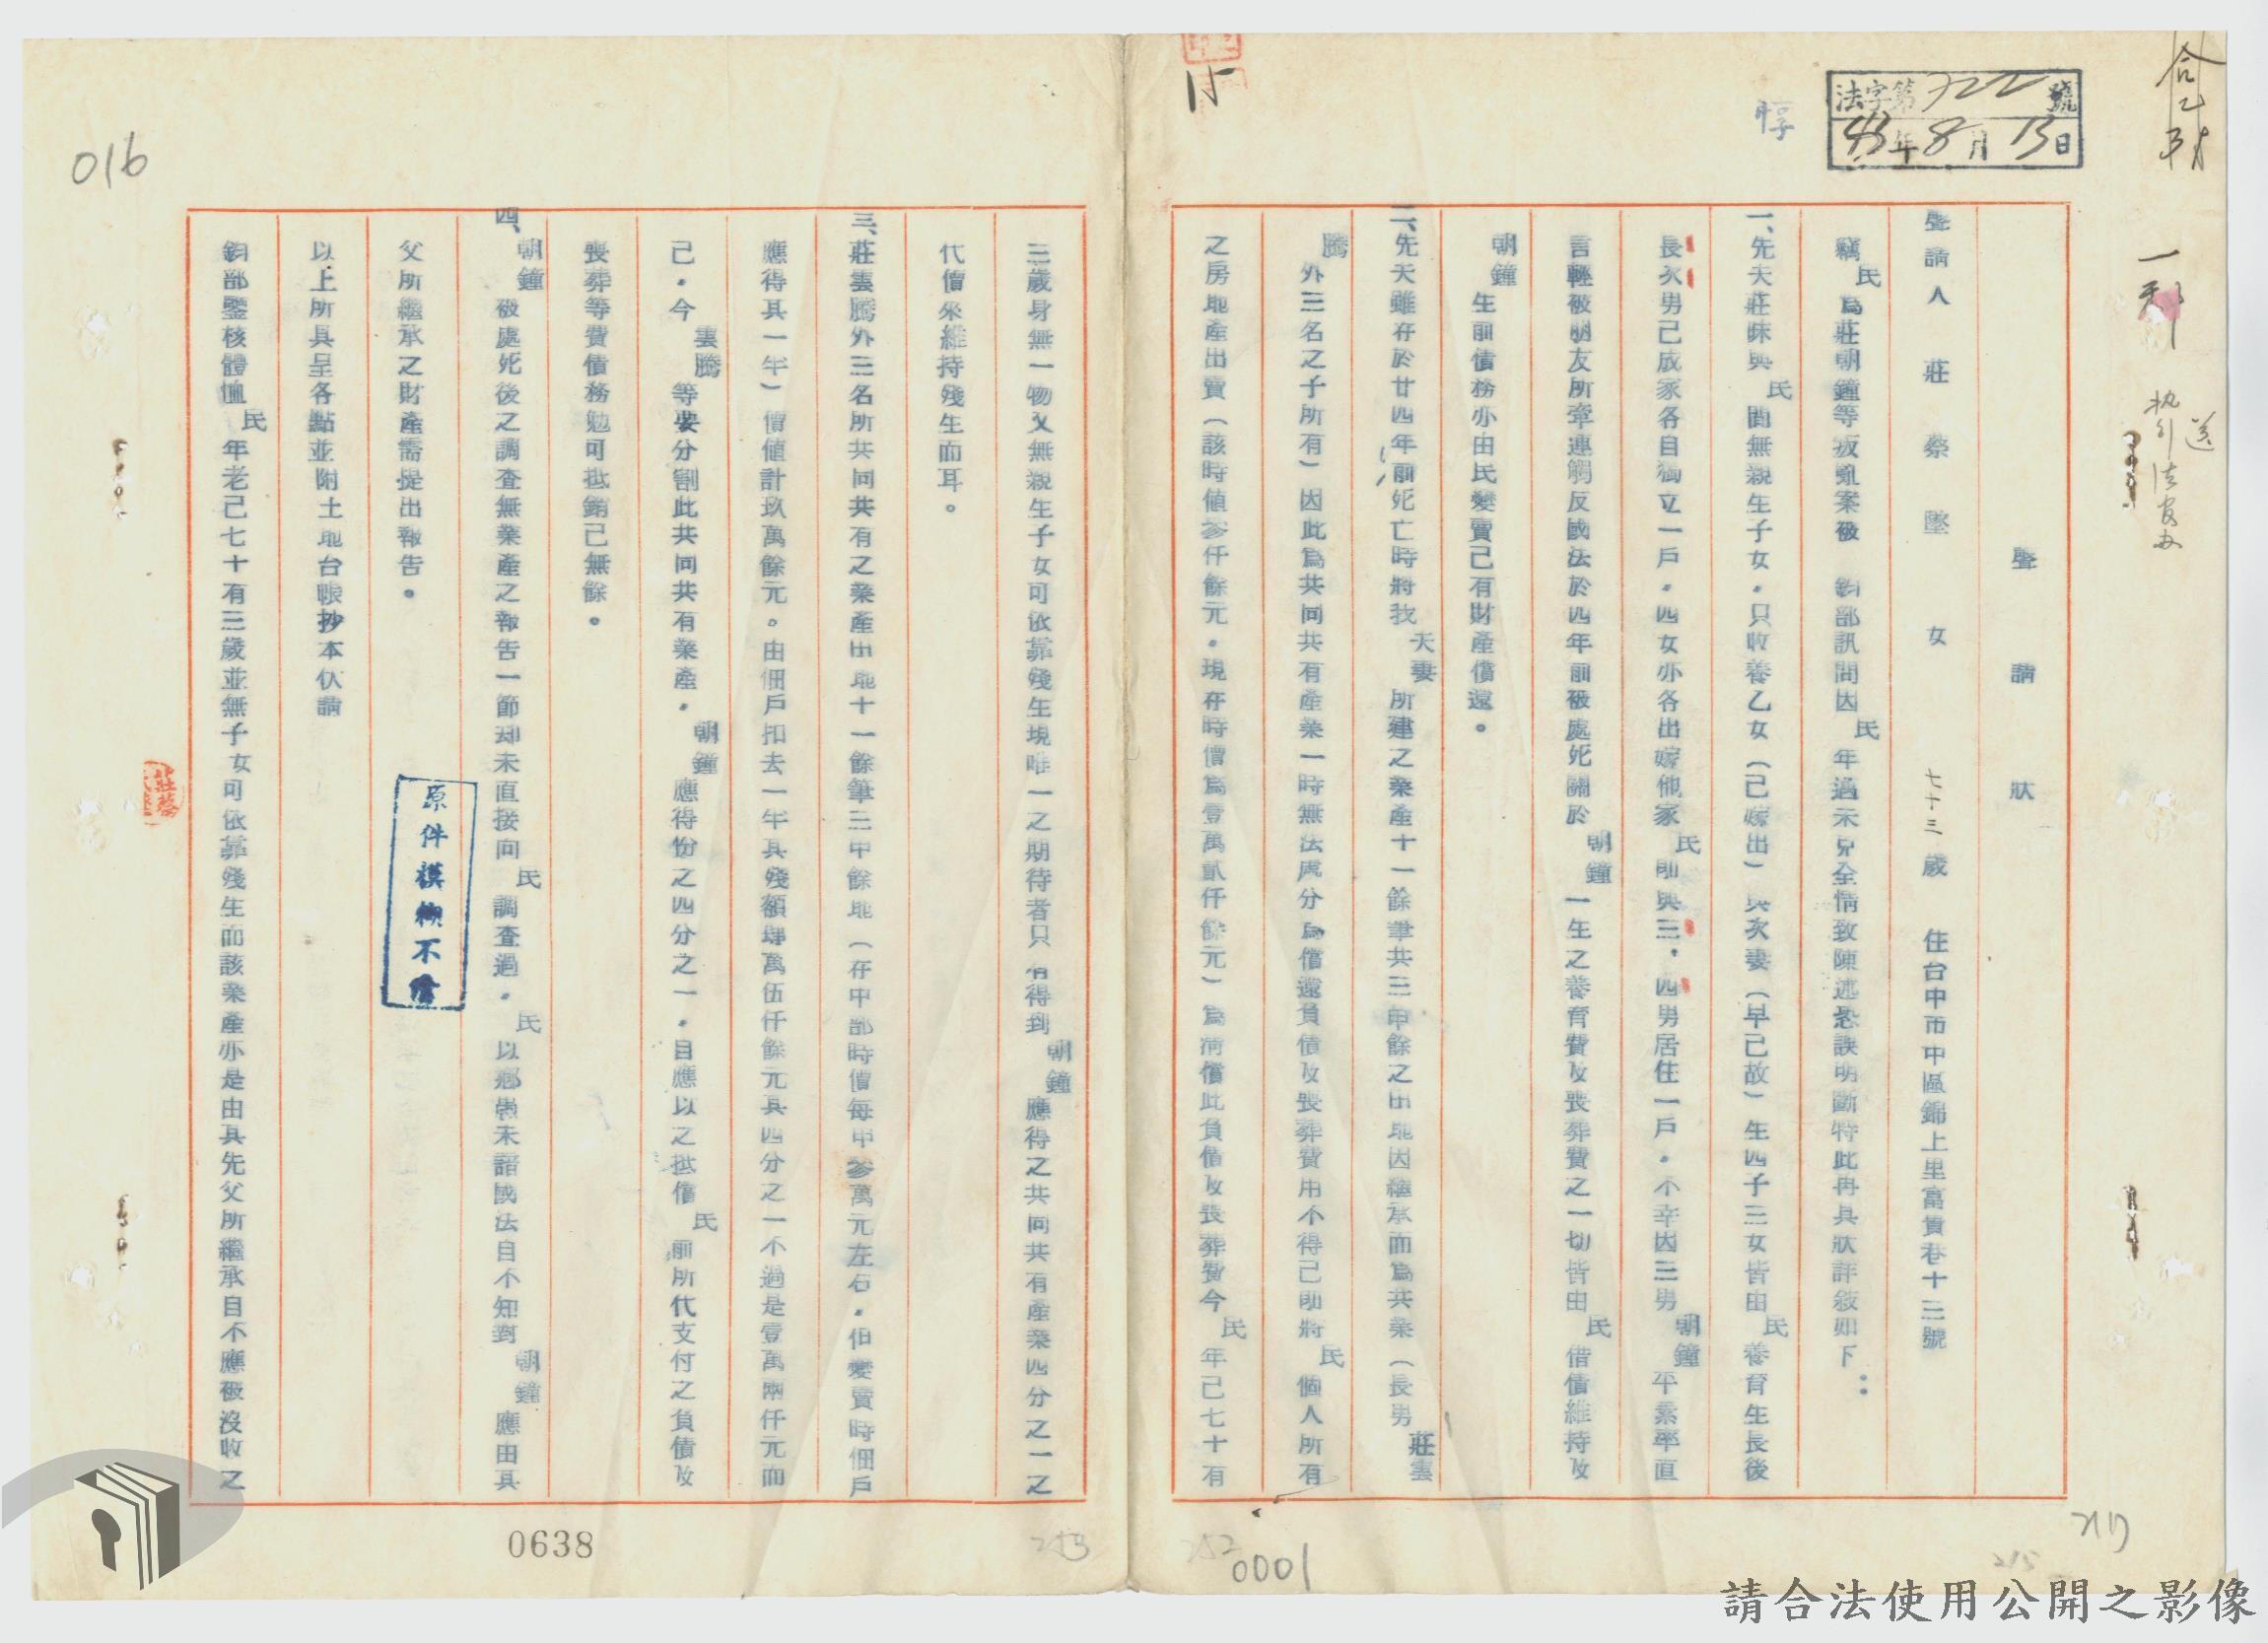 聲請狀
聲請人 莊蔡墜女 七十三歲 住台中市中區錦上里富貴巷十二號
竊民為莊朝鐘等叛亂案被 鈞部訊問因民年過未克全情致陳述恐誤明斷特此再具狀詳敍如下：
一、先夫莊昧與民間無親生子女．只收養乙女（已嫁出）與次妻（早已故）生四子三女皆由民養育生長後
長次男已成家各自獨立一戶．四女亦各出嫁他家民即與三．四男居住一戶．不幸因三男朝鐘平素率直
言輕被朋友所牽連觸反國法於四年前被處死關於朝鐘一生之養育費及喪葬費之一切皆由民借債維持及
朝鐘生前債務亦由民變賣已有財產償還。
二、先夫雖在於廿四年前死亡時將我夫妻所建之業產十一餘筆共三甲餘之田地因繼承而為共業（長男莊雲
騰外三名之子所有）因此為共同共有產業一時無法處分為償還負債及喪葬費用不得已即將民個人所有
之房地產出賣（該時值參仟餘元．現在時價為壹萬貳仟餘元）為清償此負債及喪葬費今民年已七十有
三歲身無一物又無親生子女可依靠殘生現唯一之期待者只有得到朝鐘應得之共同共有產業四分之一之
代價來維持殘生而耳。
三、莊雲騰外三名所共同共有之業產田地十一餘筆三甲餘地（在中部時價每甲參萬元左右．但變賣時佃戶
應得其一半）價值計玖萬餘元。由佃戶扣去一半其殘額肆萬伍仟餘元其四分之一不過是壹萬兩仟元而
已．今雲騰等要分割此共同共有業產．朝鐘應得份之四分之一．目應以之抵償民前所代支付之負債及
喪葬等費債務勉可抵銷已無餘。
四、朝鐘被處死後之調查無業產之報告一節却未直接向民調查過．民以鄉愚未諳國法自不知對朝鐘應由其
父所繼承之財產需提出報告。
以上所具呈各點並附土地台帳抄本伏請
鈞部鑒核體恤民年老已七十有三歲並無子女可依靠殘生而該業產亦是由其先父所繼承自不應被沒收之
法字第722號
43年8月13日
惇
15
送
執行法官辦
217
215
0001
252
253
0638
016
原件模糊不清
莊蔡
請合法使用公開之影像